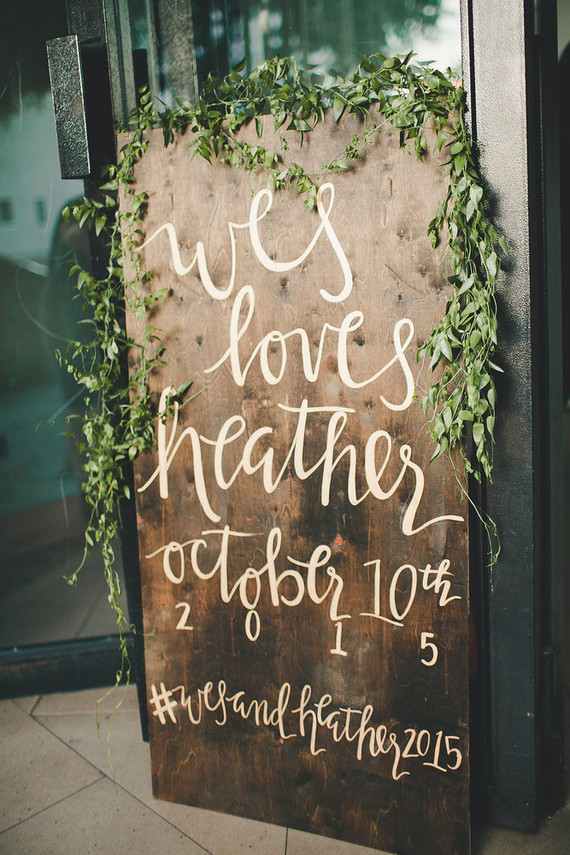 wes
loves
heather
october 10th
2 0 1 5
#wesandheather2015